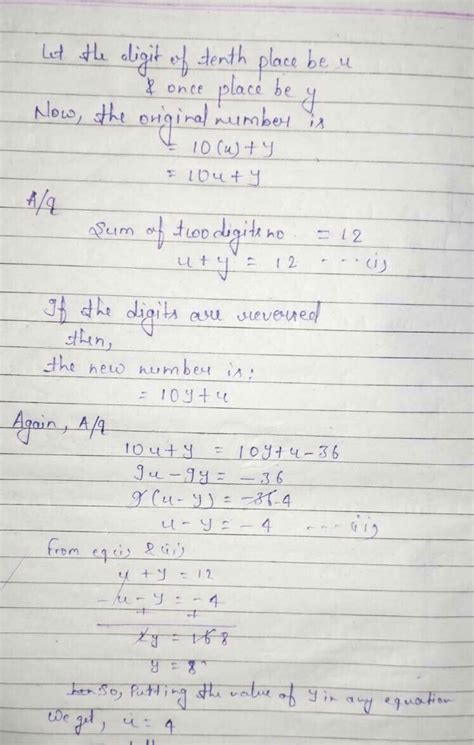 Let the digit of tenth place be u
& once place be y
Now, the original number is
= 10(u) + y
= 10u + y
A/q
Sum of two digits no = 12
u + y = 12 ---- (i)
If the digits are reversed
then,
the new number is:
= 10y + u
Again, A/q
10u + y = 10y + u - 36
9u - 9y = -36
9(u - y) = -36 4
u - y = -4 ---- (ii)
from eq (i) & (ii)
u + y = 12
- u - y = - 4
+ +
2y = 16 8
y = 8
So, Putting the value of y in any equation
We get, u = 4